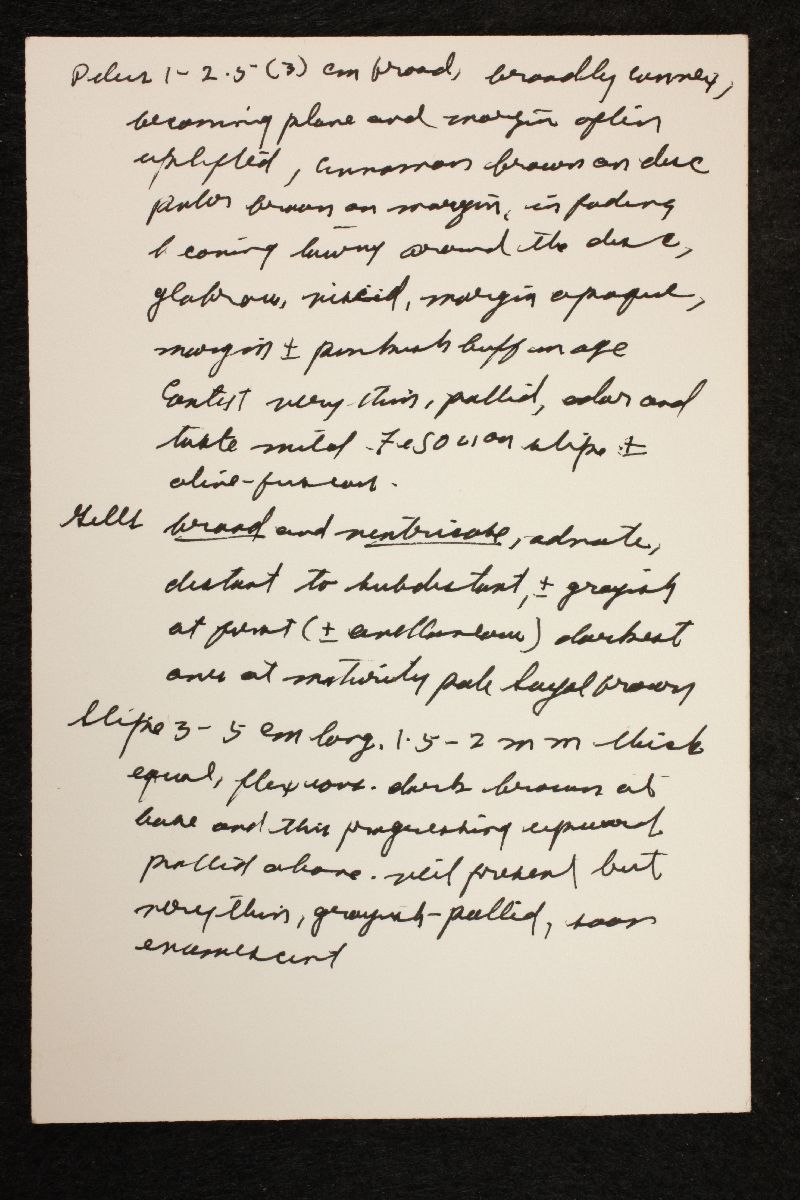 Pileus 1-2.5 (3) cm broad, broadly convex,
becoming plane and margin often
uplifted, cinnamon brown on disc
paler brown on margin, in fading
becoming tawny around the disc,
glabrous, viscid, margin opaque,
margin ± pinkish buff in age
Context very thin, pallid, odor and
taste mild. FeSO4 on stipe ±
olive-fuscous.
Gills broad and ventricose, adnate,
distant to subdistant, ± grayish
at first (± avellaneous) darkest
ones at maturity pale sayal brown
Stipe 3-5 cm long, 1.5-2 mm thick
equal, flexuous. dark brown at
base and this progressing upward
pallid above. veil present but
very thin, grayish-pallid, soon
evanescent